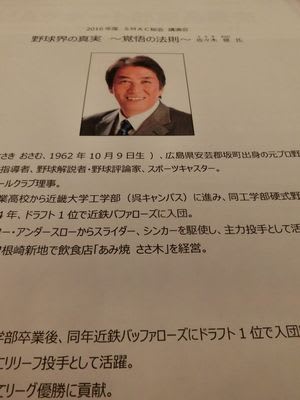 2016年度 SMAC総会 講演会
野球界の真実 ～覚悟の法則～ 佐々木 修 氏
さき おさむ、1962 年 10 月 9 日生 ）、広島県安芸郡坂町出身の元プロ野
指導者、野球解説者・野球評論家、スポーツキャスター。
ールクラブ理事。
業高校から近畿大学工学部（呉キャンパス）に進み、同工学部硬式野
4 年、ドラフト 1 位で近鉄バファローズに入団。
ター・アンダースローからスライダー、シンカーを駆使し、主力投手として活
曽根崎新地で飲食店「あみ焼 ささ木」を経営。
学部卒業後、同年近鉄バッファローズにドラフト 1 位で入団
にリリーフ投手として活躍。
てリーグ優勝に貢献。